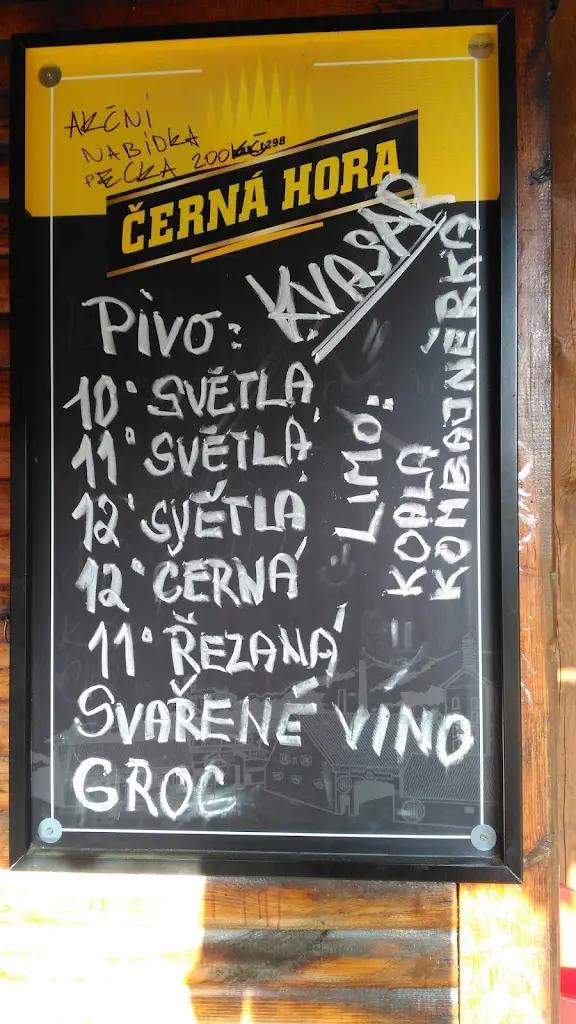 AKČNÍ
NABÍDKA
PECKA 200KČ
1298
ČERNÁ HORA
KVASAR
PiVO:
10° SVĚTLÁ
11° SVĚTLÁ
12° SVĚTLÁ
12° ČERNÁ
11° ŘEZANÁ
SVAŘENÉ VÍNO
GROG
LIMO:
KOALA
KOMBAJNÉRKA